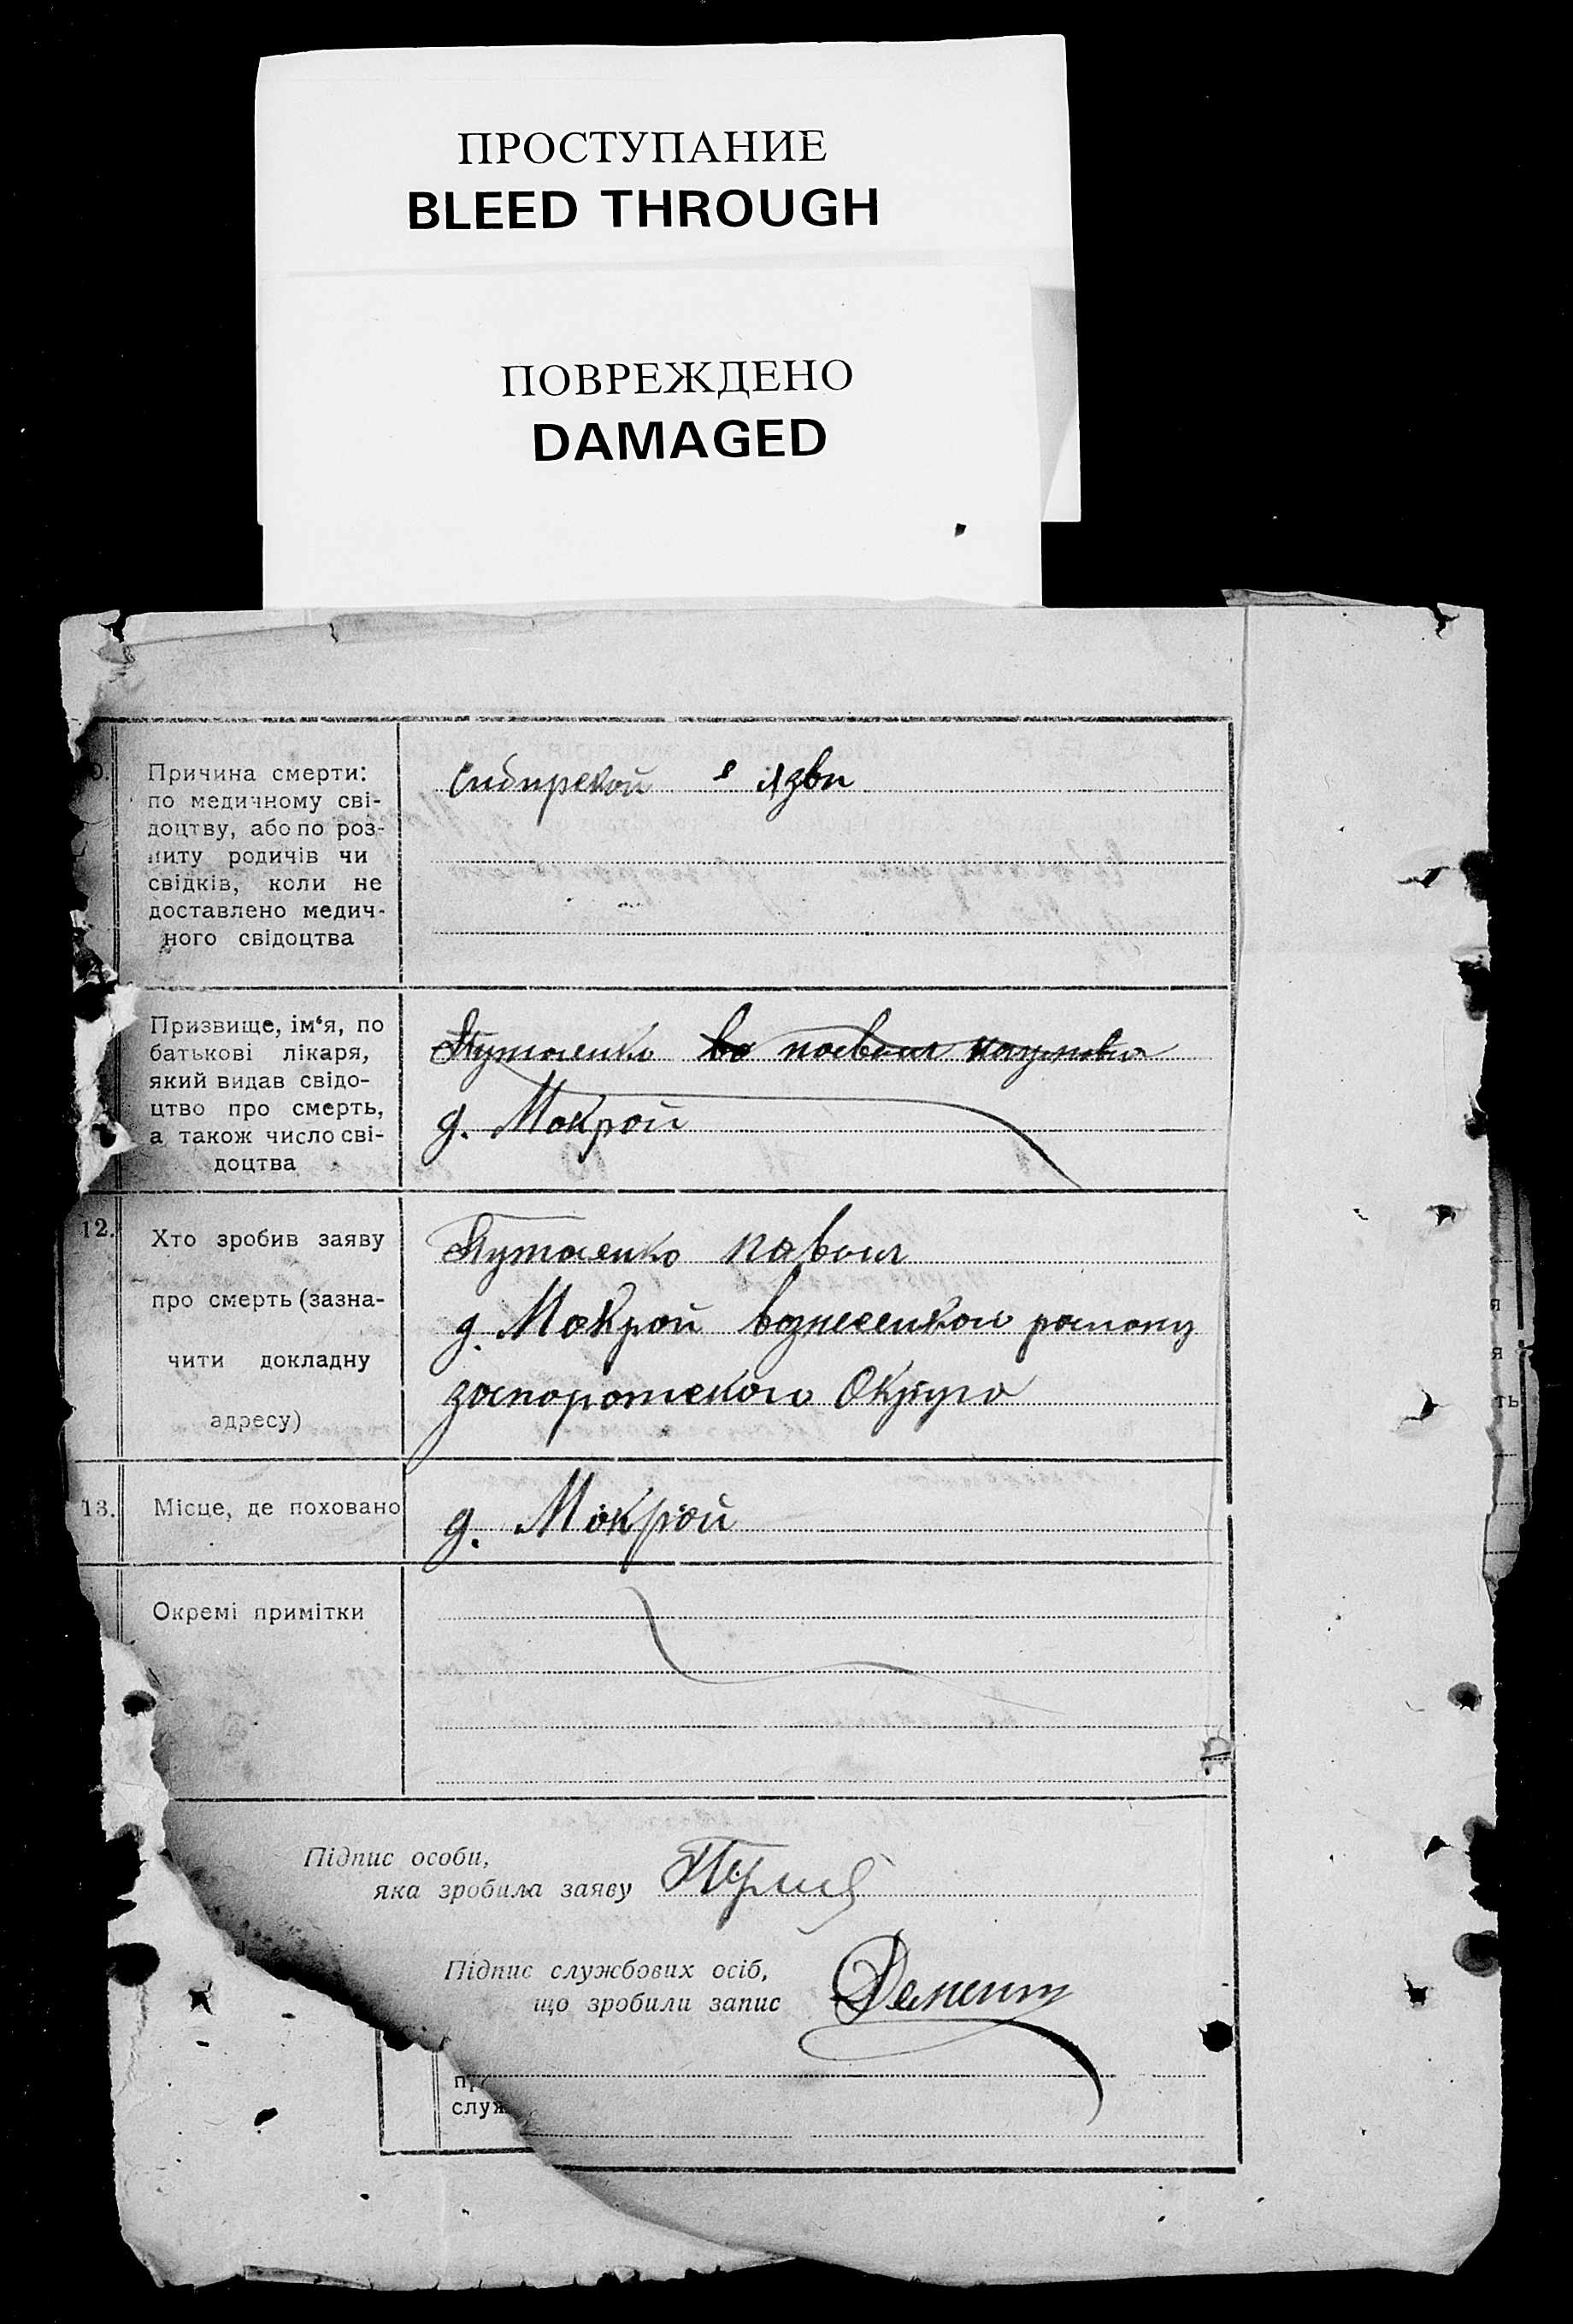 ПРОСТУПАНИЕ
BLEED THROUGH
ПОВРЕЖДЕНО
DAMAGED
Причина смерти:
по медичному сві-
доцтву, або по роз-
питу родичів чи
свідків, коли не
доставлено медич-
ного свідоцтва
Сибирской язви
Призвище, ім‘я, по
батькові лікаря,
який видав свідо-
цтво про смерть,
а також число сві-
доцтва
д. Мокрой
12.
Хто зробив заяву
про смерть (зазна-
чити докладну
адресу)
павол
д. Мокрой
Округа
13. Місце, де поховано
д. Мокрой
Окремі примітки
Підпис особи,
яка зробила заяву
Підпис службових осіб,
що зробили запис
служ
я
я
ть